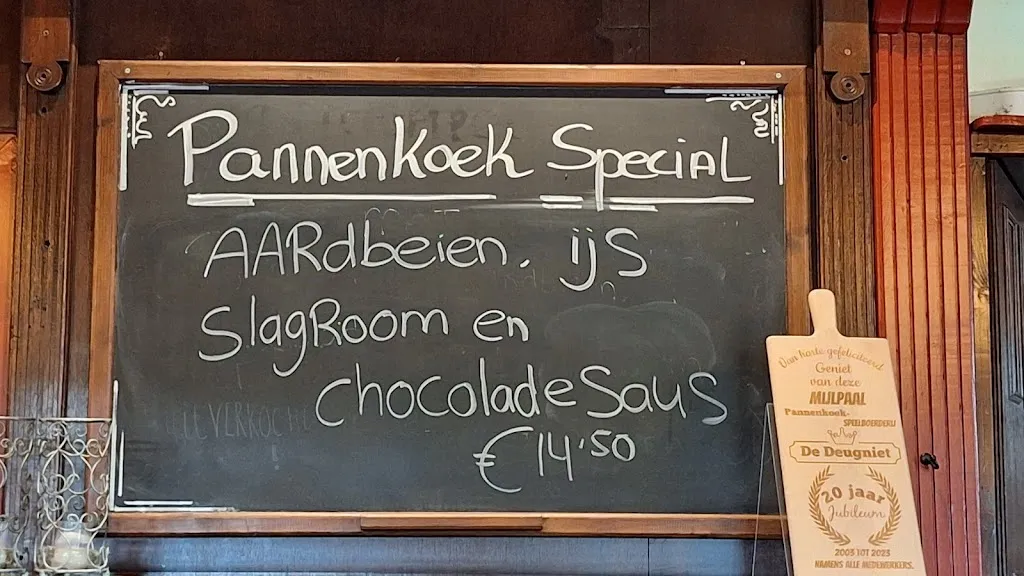 Pannenkoek Special
AARdbeien. ijs
SlagRoom en
chocoladesaus
€ 14'50
Van harte gefeliciteerd
Geniet
van deze
MIJLPAAL
Pannenkoek-
SPEELBOERDERIJ
De Deugniet
20 jaar
Jubileum
2003 TOT 2023
NAMENS ALLE MEDEWERKERS.